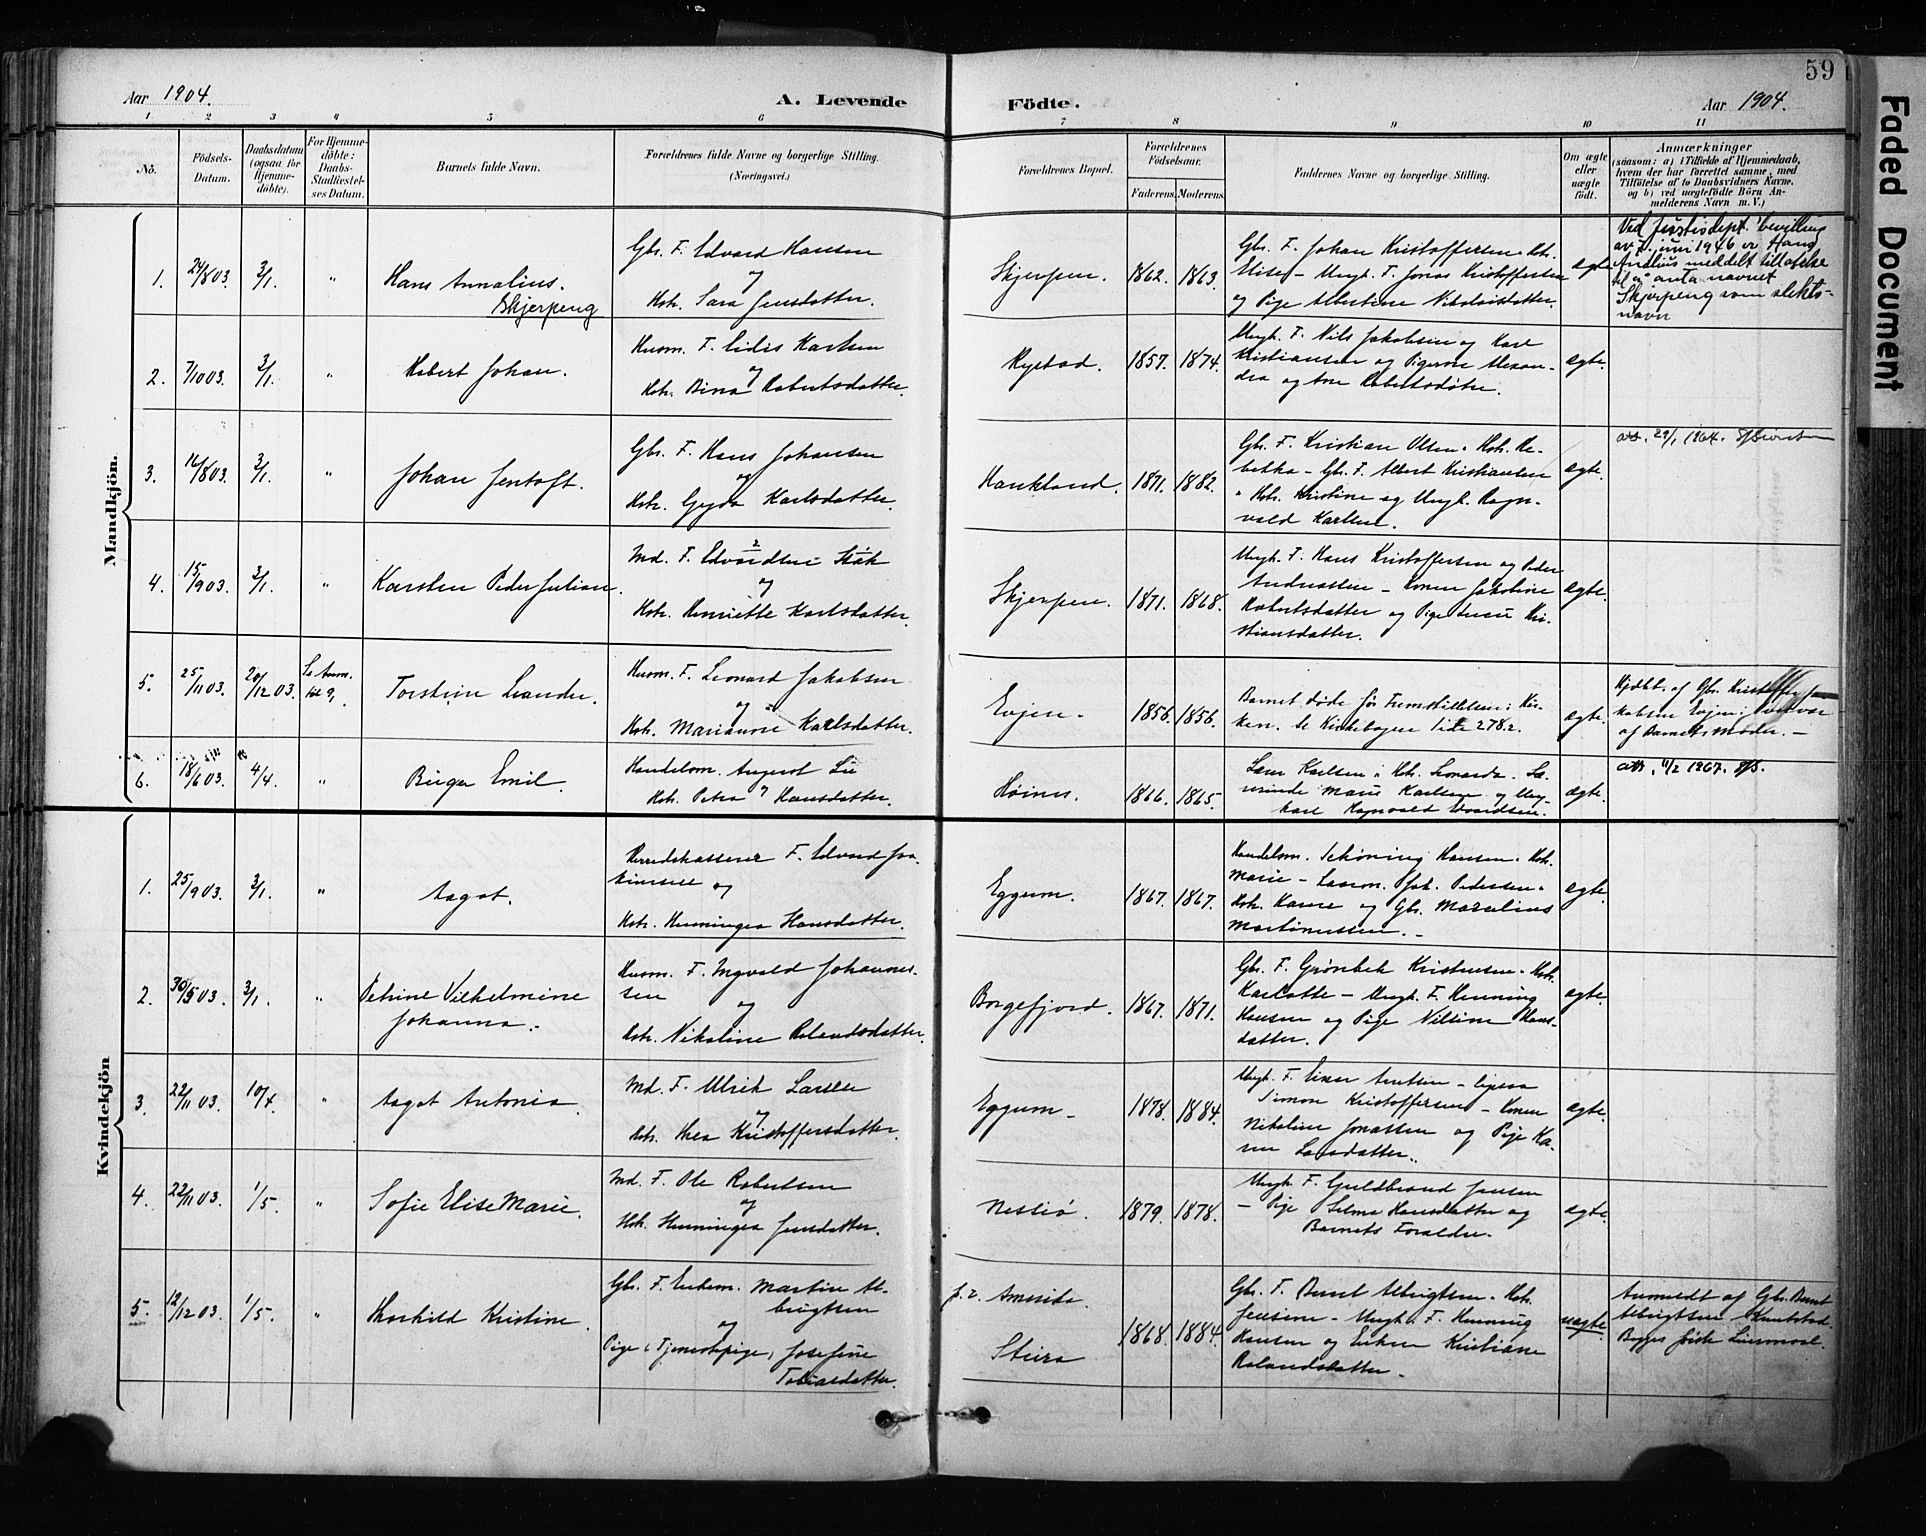 59
Faded Document
Aar 1904.
A. Levende
Födte.
Aar 1904.
1 2 3 4 5 6 7 8 9 10 11
No.
Födsels-
Datum.
Daabsdatum
(ogsaa for
Hjemme-
döbte).
For Hjemme-
döbte:
Daabs-
Stadfæstel-
ses Datum.
Barnets fulde Navn.
Forældrenes fulde Navne og borgerlige Stilling.
(Næringsvei.)
Forældrenes Bopæl.
Forældrenes
Födselsaar.
Faderens. Moderens.
Faddernes Navne og borgerlige Stilling.
Om ægte
eller
uægte
födt.
Anmærkninger
(saasom: a) i Tilfælde af Hjemmedaab,
hvem der har forrettet samme, med
Tilföielse af to Daabsvidners Navne.
og b) ved uægtefödte Börn An-
melderens Navn m. V.)
Mandkjön.
1. 24/8 03. 3/1. "
Hans Annalius.
Skjerpeng
Gbr. F. Edvard Hansen
og
Hstr. Sara Jensdatter.
Skjerpen. 1862. 1863.
Gbr. F. Johan Kristoffersen. Hstr.
Elise - Ungk. F. Jonas Kristoffersen
og Pige Albertine Nikolaisdatter.
ægte
Ved justisdept. bevilling
av juni 1946 er Hans
meddelt tillatelse
til å anta navnet
Skjerpeng som slekts-
navn
2. 7/10 03. 3/1. "
Robert Johan.
Husm. F. Eidis Karlsen
og
Hstr. Bina Robertsdatter.
Rystad. 1857. 1874.
Ungk. F. Nils Jakobsen og Karl
Kristiansen og Pigerne Alexan-
dra og Ane Robertsdøtre.
ægte.
3. 16/8 03. 3/1. "
Johan Jentoft.
Gbr. F. Hans Johansen
og
Hstr. Gyda Karlsdatter.
Haukland. 1871. 1882.
Gbr. F. Kristian Olsen. Hstr. Re-
bekka - Gbr. F. Albert Kristiansen
Hstr. Kristine og Ungk. Ragn-
vald Karlsen.
ægte.
att. 29/1 1964.
4. 15/9 03. 3/1. "
Karsten Peder Julian.
Md. F. Edvardsen Støk
og
Hstr. Henriette Karlsdatter.
Skjerpen. 1871. 1868.
Ungk. F. Hans Kristoffersen og Peder
Andreassen - Konen Jakobine
Robertsdatter og Pige Kri-
stiansdatter.
ægte.
5. 25/11 03. 20/12 03.
Se Anm.
Torstein Leander.
Husm. F. Leonard Jakobsen
og
Hstr. Marianne Karlsdatter.
Evjen. 1856. 1856.
Barnet døde før Fremstillelsen i Kir-
ken. Se Kirkebogen Side 278.
ægte.
Hjdbt. af Gbr. Kristoffer Ja-
kobsen Evjen;
af Barnets Moder. -
6. 18/6 03. 4/4. "
Birger Emil.
Handelsm. August Lie
og
Hstr. Petra Hansdatter.
Høines. 1866. 1865.
Karlsen Hstr. Leonarda. Se-
verinde Marie Karlsen og Ung-
karl Ragnvald Edvardsen.
ægte.
att. 11/2 1967.
Kvindekjön
1. 25/9 03. 3/1. "
Aagot.
Herredskasserer F. Edvard Joa-
kimsen og
Hstr. Henningea Hansdatter.
Eggum. 1867. 1867.
Handelsm. Schøning Hansen. Hstr.
Marie - Joh. Pedersen.
Hstr. Karine og Gbr. Marselius
Martinussen. -
ægte.
2. 30/5 03. 3/1. "
Petrine Vilhelmine
Johanna.
Husm. F. Ingvald Johannes-
sen
og
Hstr. Nikoline Rolandsdatter.
Borgefjord. 1867. 1871.
Gbr. F. Grønbek Kristensen. Hstr.
Karlotte - Ungk. F. Henning
Hansen og Pige Nilsine Hans-
datter.
ægte.
3. 22/11 03. 10/4. "
Aagot Antonia.
Md. F. Ulrik Larsen
og
Hstr. Thea Kristoffersdatter.
Eggum - 1878. 1884.
Ungk. F. Einar Arntsen -
Simon Kristoffersen - Konen
Nikoline Jonassen og Pige Ka-
ren Larsdatter.
ægte.
4. 22/11 03. 1/5. "
Sofie Elise Marie.
Md. F. Ole Robertsen
og
Hstr. Henningea Jensdatter.
Nessiø. 1879. 1878.
Ungk. F. Guldbrand Jensen
- Pige Selma Hansdatter og
Barnets Forældre.
ægte.
5. 12/12 03. 1/5. "
Thorhild Kristine.
Gbr. F. Enkem. Martin Al-
brigtsen
og
Pige (Tjenestepige) Josefine
Tobiasdatter.
f. t. Amerika.
Steira
1868. 1884.
Gbr. F. Bernt Albrigtsen. Hstr.
Jensine - Ungk. F. Henning
Hansen og Enken Kristiane
Rolandsdatter.
uægte.
Anmeldt af Gbr. Bernt
Albrigtsen Knutstad.
Begges første Leiermaal.